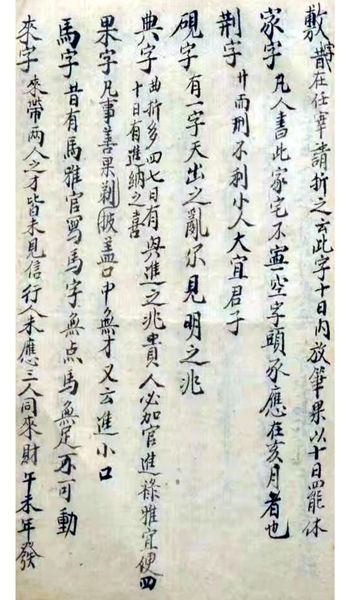 敷字昔在任宰請折之云此字十日内放筆果以十日罷休
家字凡人書此家宅不寧空字頭豕應在亥月者也
荆字廾而刑不利小人大宜君子
硯字有一字天出之亂尔見明之兆
典字曲折多四七日有與進之兆貴人必加官進祿雅宜便四
十日有進納之喜
果字凡事善果剥披盖口中無才又云進小口
馬字昔有馬雅官寫馬字無点馬無足不可動
來字來帶兩人之才皆未見信行人未應三人同來財午未年發